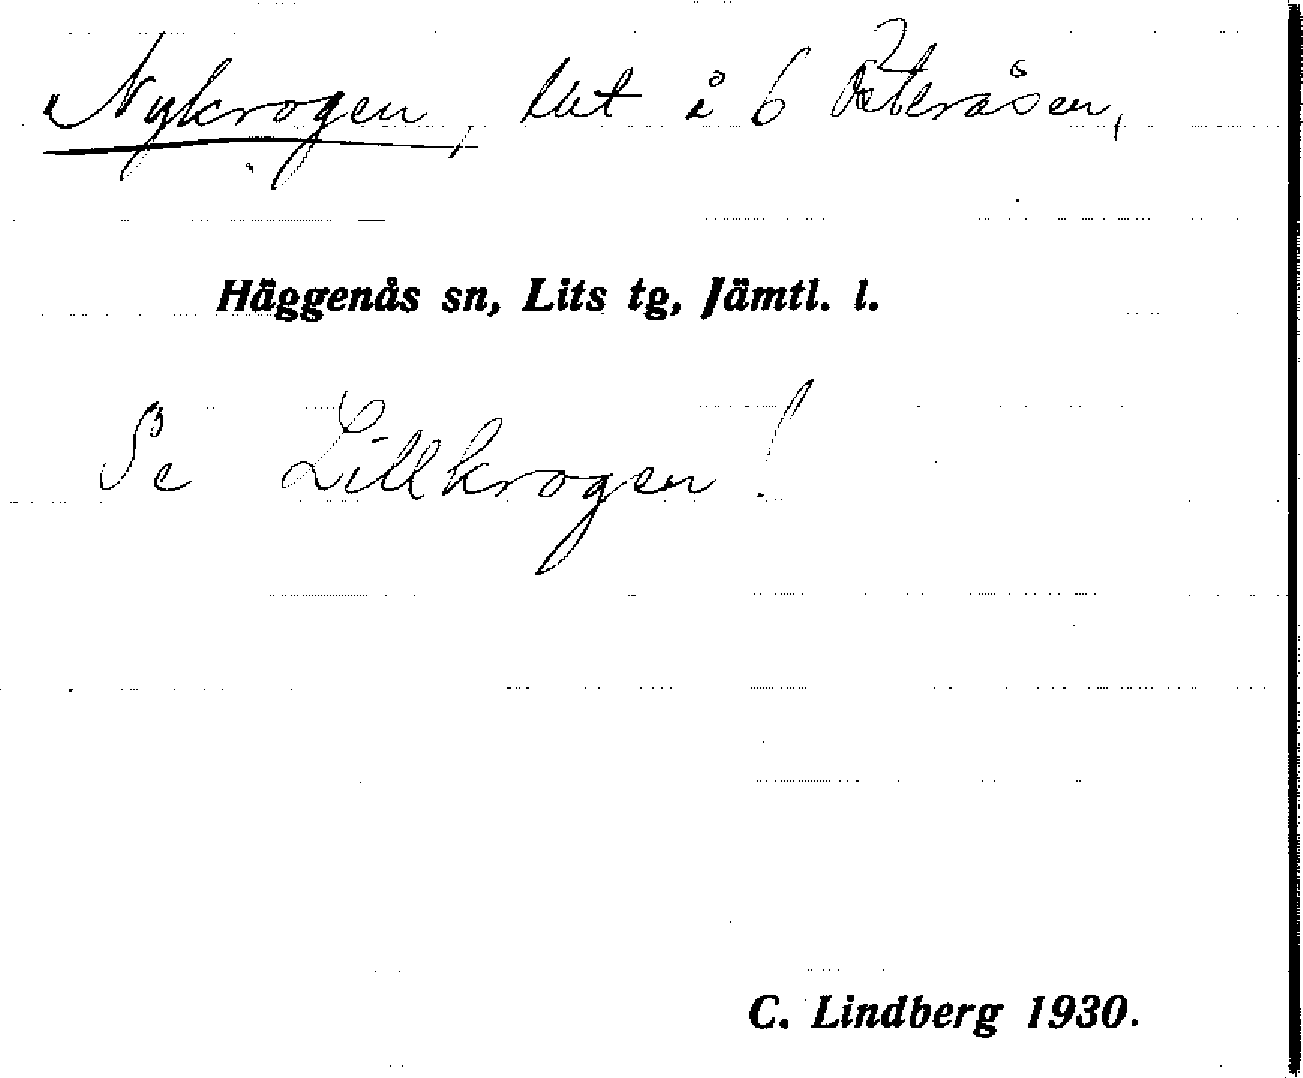 Nykrogen, tät å 6 Österåsen,
Häggenås sn, Lits tg, Jämtl. l.
Se Lillkrogen!
C. Lindberg 1930.